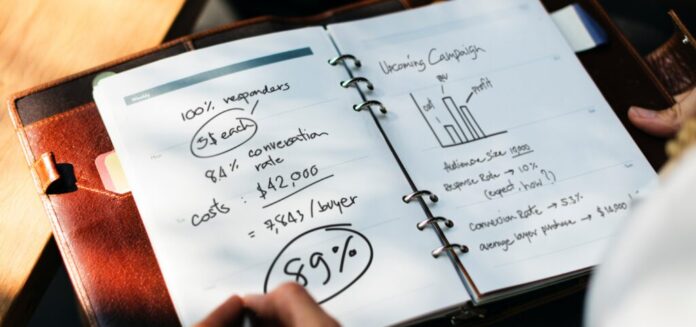 Weekly
100% responders
5$ each
84% conversation
rate
costs : $42,000
= 7,843/buyer
89%
Upcoming Campaign
profit
Audience size 10,000
Response Rate → 10%
(expect, how?)
connection Rate → 5.3%
average layer purchase → $10,000